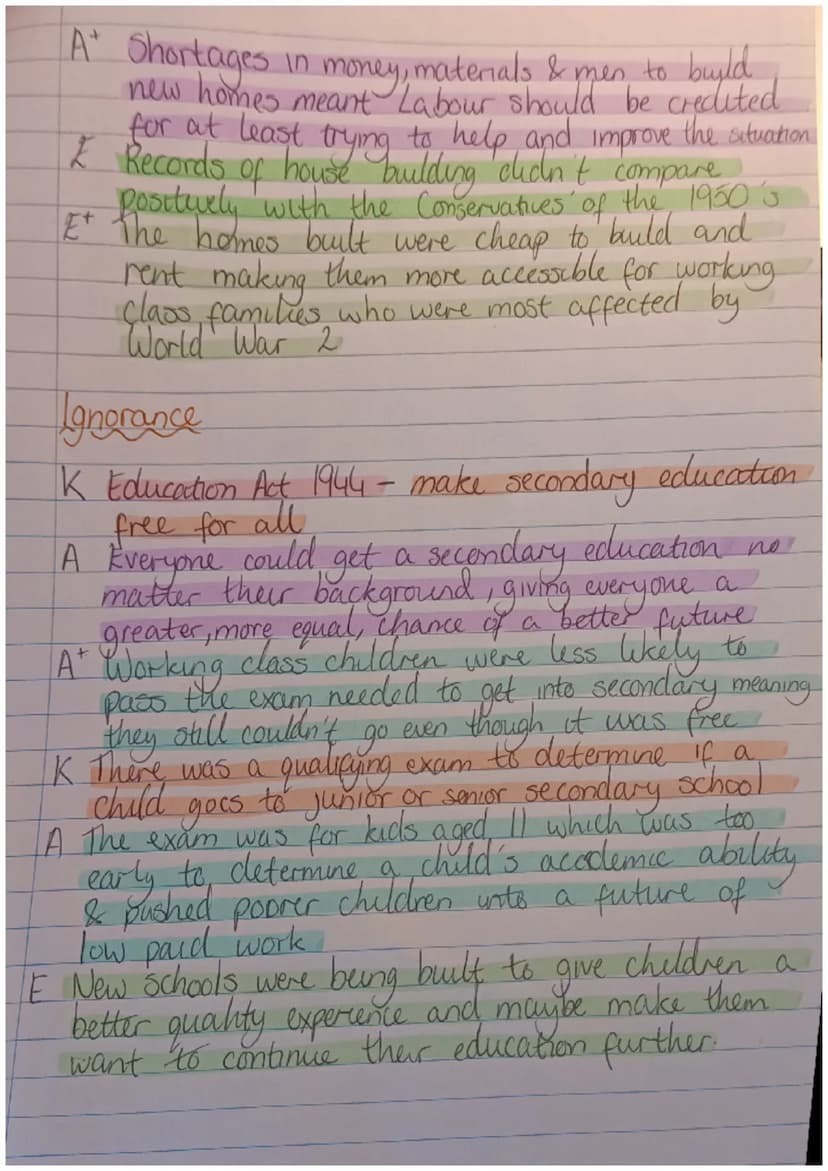 A+ Shortages in money, materials & men to build
new homes meant Labour should be credited
for at least trying to help and improve the situation
E Records of house building didn't compare
positively with the Conservatives of the 1950's
E+ The homes built were cheap to build and
rent making them more accessible for working
class families who were most affected by
World War 2
Ignorance
K Education Act 1944 - make secondary education
free for all
A Everyone could get a secondary education no
matter their background, giving everyone a
greater, more equal, chance of a better future
A+ Working class children were less likely to
pass the exam needed to get into secondary meaning
they still couldn't go even though it was free
K There was a qualifying exam to determine if a
child goes to junior or senior secondary school
A The exam was for kids aged 11 which was too
early to determine a child's academic ability
& pushed poorer children into a future of
low paid work
E New schools were being built to give children a
better quality experience and maybe make them
want to continue their education further.